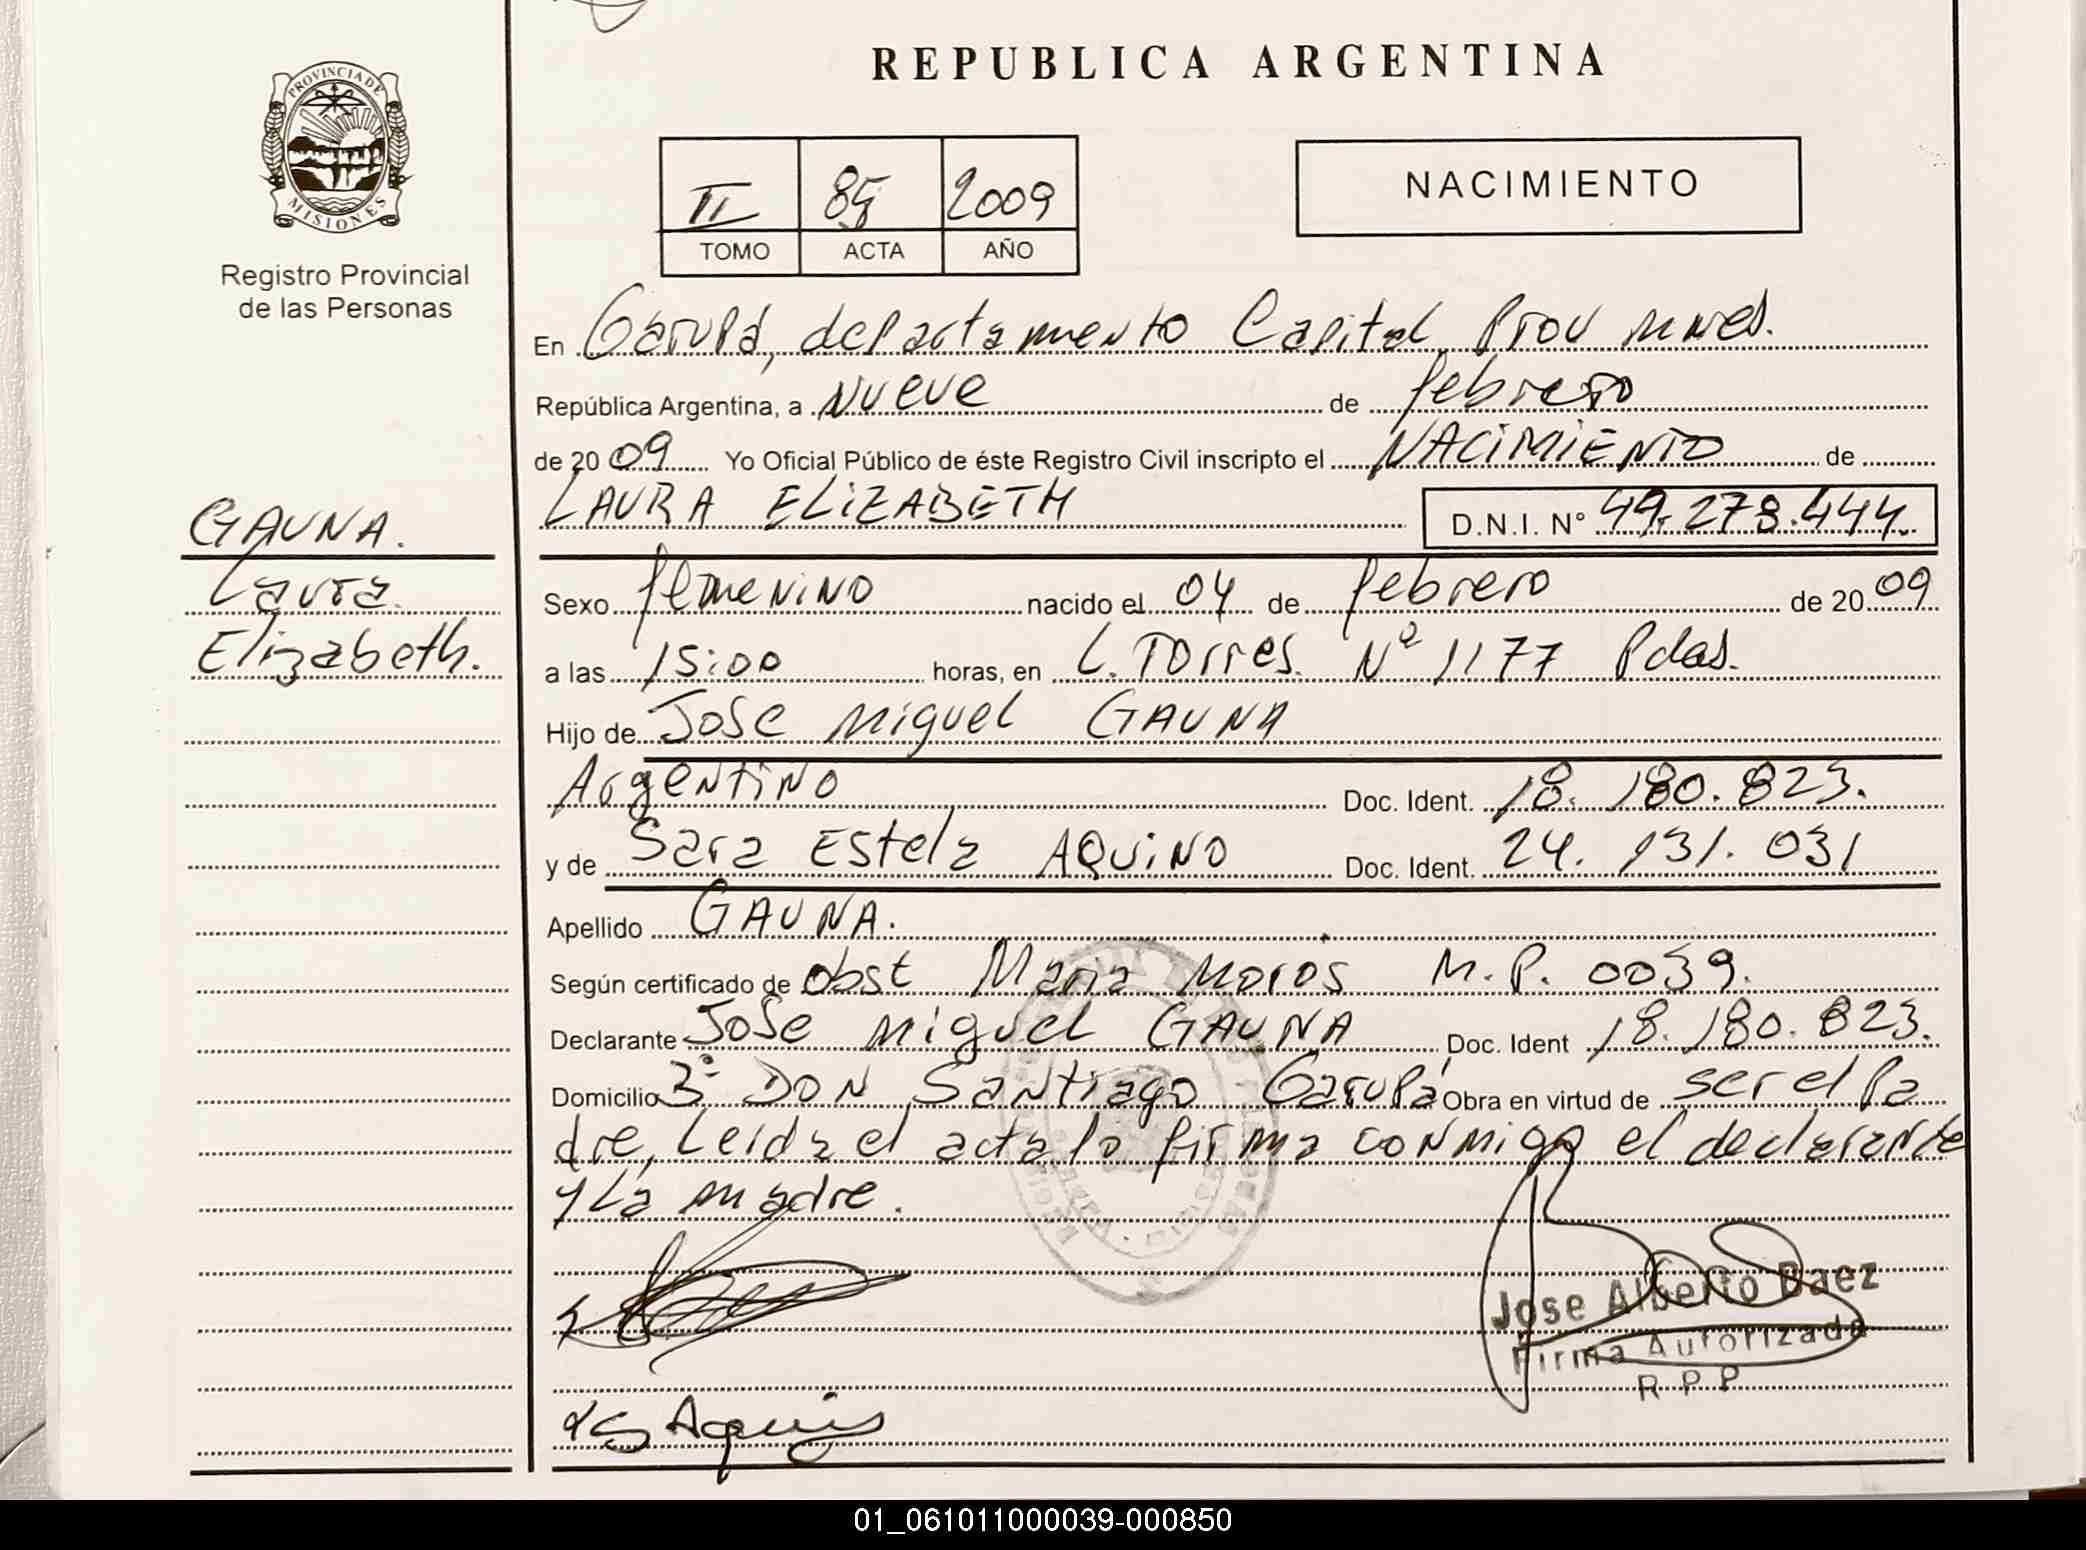 REPUBLICA ARGENTINA
PROVINCIA DE
MISIONES
Registro Provincial
de las Personas
II 85 2009
TOMO ACTA AÑO
NACIMIENTO
En Garupá, departamento Capital Prov mnes.
República Argentina, a nueve de febrero
de 20 09 Yo Oficial Público de éste Registro Civil inscripto el NACIMIENTO de
LAURA ELIZABETH D.N.I. N° 49.278.444.
GAUNA.
Laura
Elizabeth.
Sexo femenino nacido el 04 de febrero de 20 09
a las 15:00 horas, en L. Torres. Nº 1177 Pdas.
Hijo de Jose Miguel GAUNA
Argentino Doc. Ident. 18.180.823.
y de Sara Estela AQUINO Doc. Ident. 24.131.031
Apellido GAUNA.
Según certificado de obst Maria Moros M.P. 0039.
Declarante Jose Miguel GAUNA Doc. Ident 18.180.823.
Domicilio 3º DON Santiago Garupá Obra en virtud de ser el pa
dre, Leida el acta la firma conmigo el declarante
y La madre.
Jose Alberto Baez
Firma Autorizada
R P P
S Aquino
01_061011000039-000850